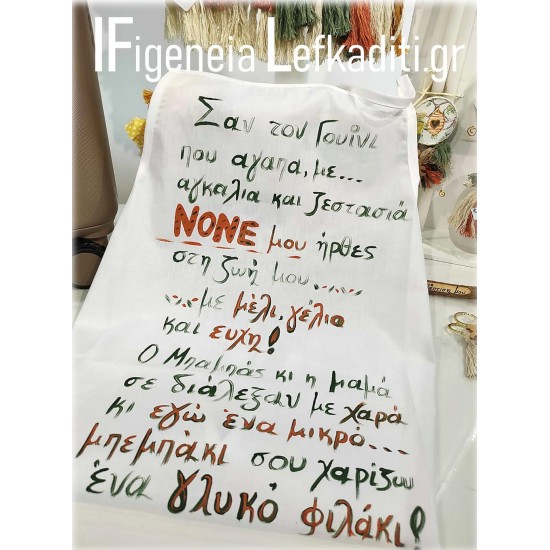 IFigeneia Lefkaditi.gr
Σαν τον Γουίνι
που αγαπα, με...
αγκαλια και ζεστασιά
ΝΟΝΕ μου ήρθες
στη ζωή μου......
...με μέλι, γέλια
και ευχη!
Ο Μπαμπάς κι η μαμά
σε διάλεξαν με χαρά
κι εγώ ένα μικρό...
μπεμπάκι σου χαρίζω
ένα γλυκό φιλάκι!